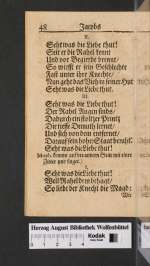 48 Jacobs
2.
Seht was die Liebe thut!
Seit er die Rahel kennt
Und vor Begierde brennt/
So wirfft er sein Geschlechte
Fast unter ihre Knechte/
Nun geht das Vieh in seiner Hut
Seht was die Liebe thut.
3.
Seht was die Liebe thut!
Der Rahel Augen sinds/
Dadurch ein stoltzer Printz
Die tieffe Demuth lernet/
Und sich von dem entfernet/
Darauf sein hoher Staat beruht.
Seht was die Liebe thut!
Jacob kommt auf von seinem Stuhl mit einer
Zitter und singet.
1.
Seht was die Liebe thut!
Weil Rahel
So liebt der Knecht die Magd:
Wer
Herzog August Bibliothek Wolfenbüttel
Kodak